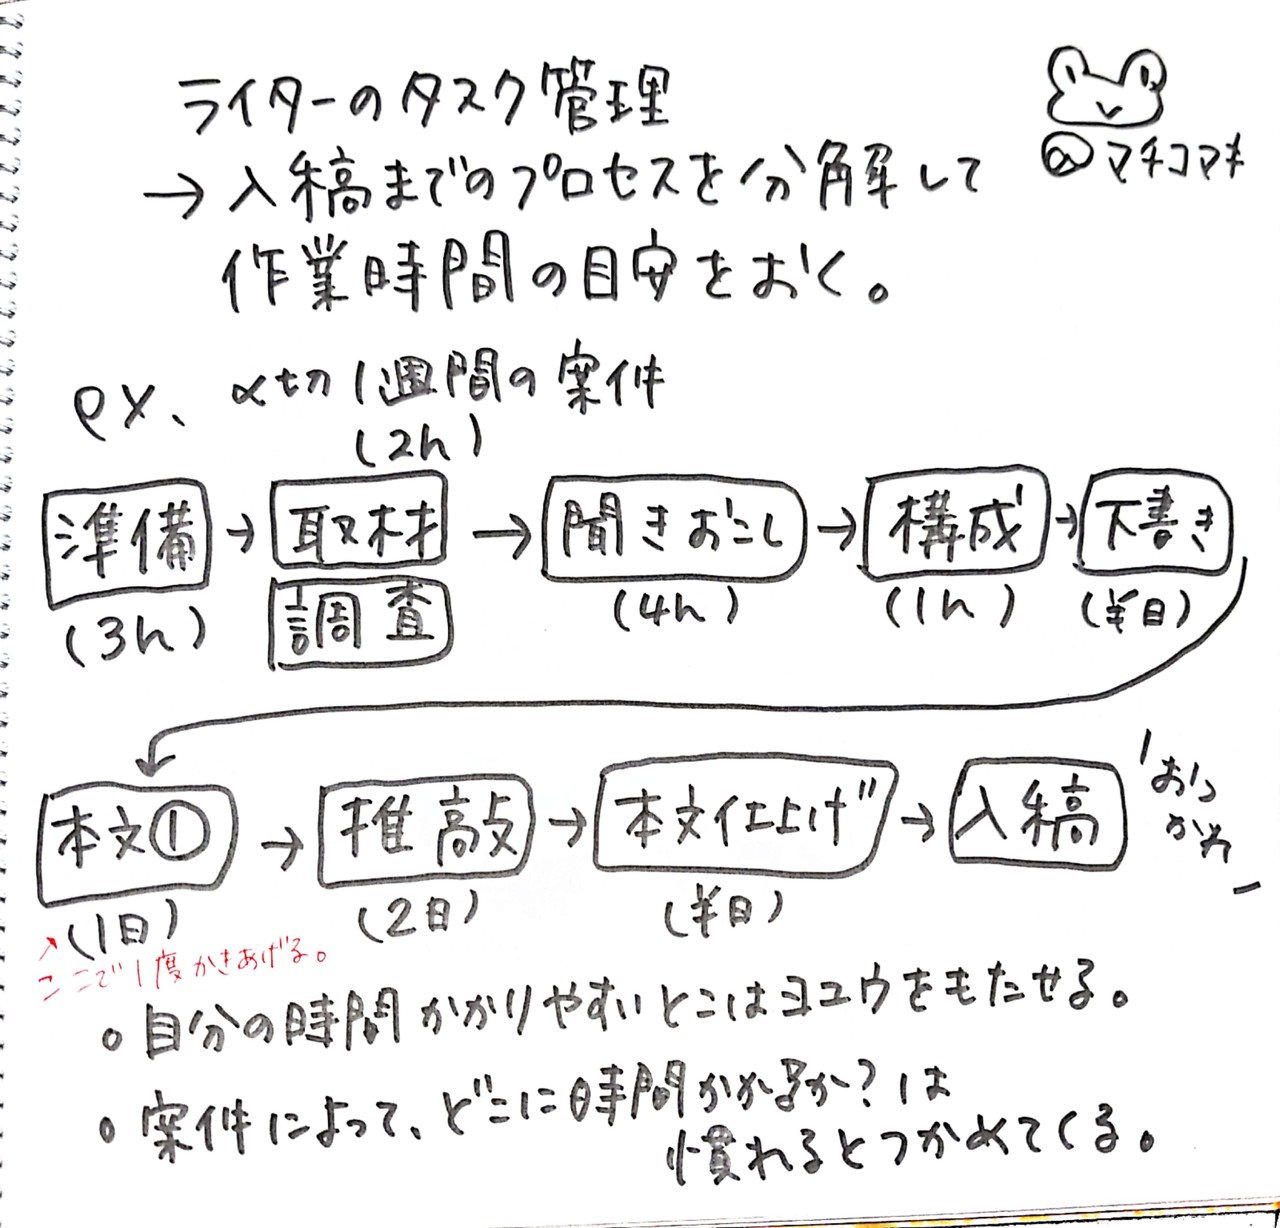 ライターのタスク管理
→入稿までのプロセスを分解して
作業時間の目安をおく。
マチコマキ
ex、〆切1週間の案件
(2h)
準備→取材→聞きおこし→構成→下書き
調査
(3h) (4h) (1h) (半日)
本文①→推敲→本文仕上げ→入稿
「おつ
かれ」
(1日) (2日) (半日)
↗ここで1度かきあげる。
○自分の時間かかりやすいとこはヨユウをもたせる。
○案件によって、どこに時間かかるか?は
慣れるとつかめてくる。